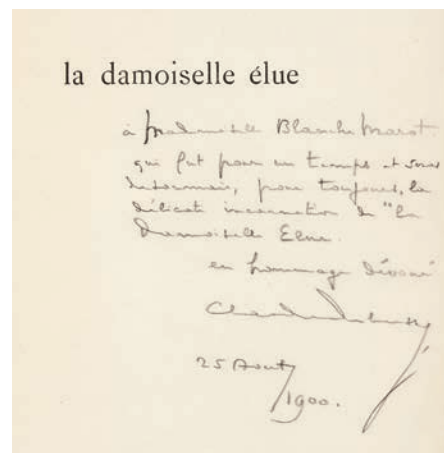 la damoiselle élue
à Mademoiselle Blanche Marot
qui fut pour un temps et
désormais, pour toujours, la
délicate incarnation de "La
Damoiselle Elue.
en hommage dévoué
Claude Debussy
25 Aout
1900.